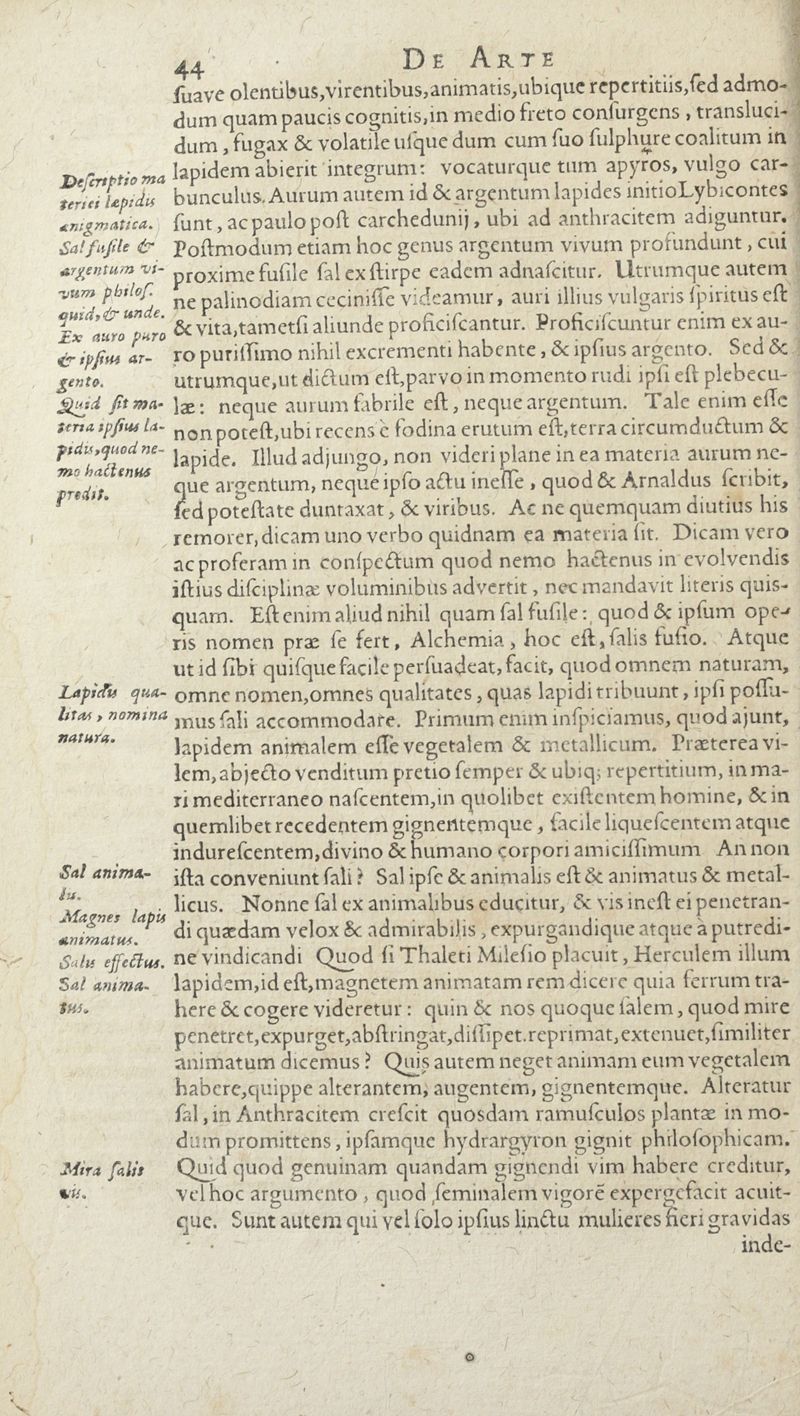 44 DE ARTE
ſuave olentibus,virentibus,animatis,ubique repertitiis,ſed admo-
dum quam paucis cognitis,in medio freto conſurgens , transluci-
dum , fugax & volatile uſque dum cum ſuo ſulphure coalitum in
lapidem abierit integrum: vocaturque tum apyros, vulgo car-
bunculus. Aurum autem id & argentum lapides initio Lybicontes
ſunt , ac paulo poſt carchedunij , ubi ad anthracitem adiguntur.
Poſtmodum etiam hoc genus argentum vivum profundunt , cui
proxime fuſile ſal ex ſtirpe eadem adnaſcitur. Utrumque autem
ne palinodiam ceciniſſe videamur , auri illius vulgaris ſpiritus eſt
& vita,tametſi aliunde proficiſcantur. Proficiſcuntur enim ex au-
ro puriſſimo nihil excrementi habente , & ipſius argento. Sed &
utrumque,ut dictum eſt,parvo in momento rudi ipſi eſt plebecu-
læ : neque aurum fabrile eſt , neque argentum. Tale enim eſſe
non poteſt,ubi recens è fodina erutum eſt,terra circumductum &
lapide. Illud adjungo, non videri plane in ea materia aurum ne-
que argentum, neque ipſo actu ineſſe , quod & Arnaldus ſcribit,
ſed poteſtate duntaxat , & viribus. Ac ne quemquam diutius his
remorer,dicam uno verbo quidnam ea materia ſit. Dicam vero
ac proferam in conſpectum quod nemo hactenus in evolvendis
iſtius diſciplinæ voluminibus advertit , nec mandavit literis quis-
quam. Eſt enim aliud nihil quam ſal fuſile : quod & ipſum ope-
ris nomen præ ſe fert, Alchemia , hoc eſt, ſalis fuſio. Atque
ut id ſibi quiſque facile perſuadeat, facit, quod omnem naturam,
omne nomen,omnes qualitates , quas lapidi tribuunt , ipſi poſſu-
mus ſali accommodare. Primum enim inſpiciamus, quod ajunt,
lapidem animalem eſſe vegetalem & metallicum. Præterea vi-
lem,abjecto venditum pretio ſemper & ubiq; repertitium, in ma-
ri mediterraneo naſcentem,in quolibet exiſtentem homine, & in
quemlibet recedentem gignentemque , facile liqueſcentem atque
indureſcentem,divino & humano corpori amiciſſimum An non
iſta conveniunt ſali ? Sal ipſe & animalis eſt & animatus & metal-
licus. Nonne ſal ex animalibus educitur, & vis ineſt ei penetran-
di quædam velox & admirabilis , expurgandique atque à putredi-
ne vindicandi Quod ſi Thaleti Mileſio placuit , Herculem illum
lapidem,id eſt,magnetem animatam rem dicere quia ferrum tra-
here & cogere videretur : quin & nos quoque ſalem, quod mire
penetret,expurget,abſtringat,diſſipet.reprimat,extenuet,ſimiliter
animatum dicemus ? Quis autem neget animam eum vegetalem
habere,quippe alterantem, augentem, gignentemque. Alteratur
ſal , in Anthracitem creſcit quosdam ramuſculos plantæ in mo-
dum promittens , ipſamque hydrargyron gignit philoſophicam.
Quid quod genuinam quandam gignendi vim habere creditur,
vel hoc argumento , quod ſeminalem vigorē expergefacit acuit-
que. Sunt autem qui vel ſolo ipſius linctu mulieres fieri gravidas
inde-
Deſcriptio ma
teriei lapidis
ænigmatica.
Sal fuſile &
argentum vi-
vum philoſ.
quid, & unde.
Ex auro puro
& ipſius ar-
gento.
Quid ſit ma-
teria ipſius la-
pidis, quod ne-
mo hactenus
predit.
Lapidis qua-
litas , nomina
natura.
Sal anima-
lis.
Magnes lapis
animatus.
Salis effectus.
Sal anima-
tus.
Mira ſalis
vis.